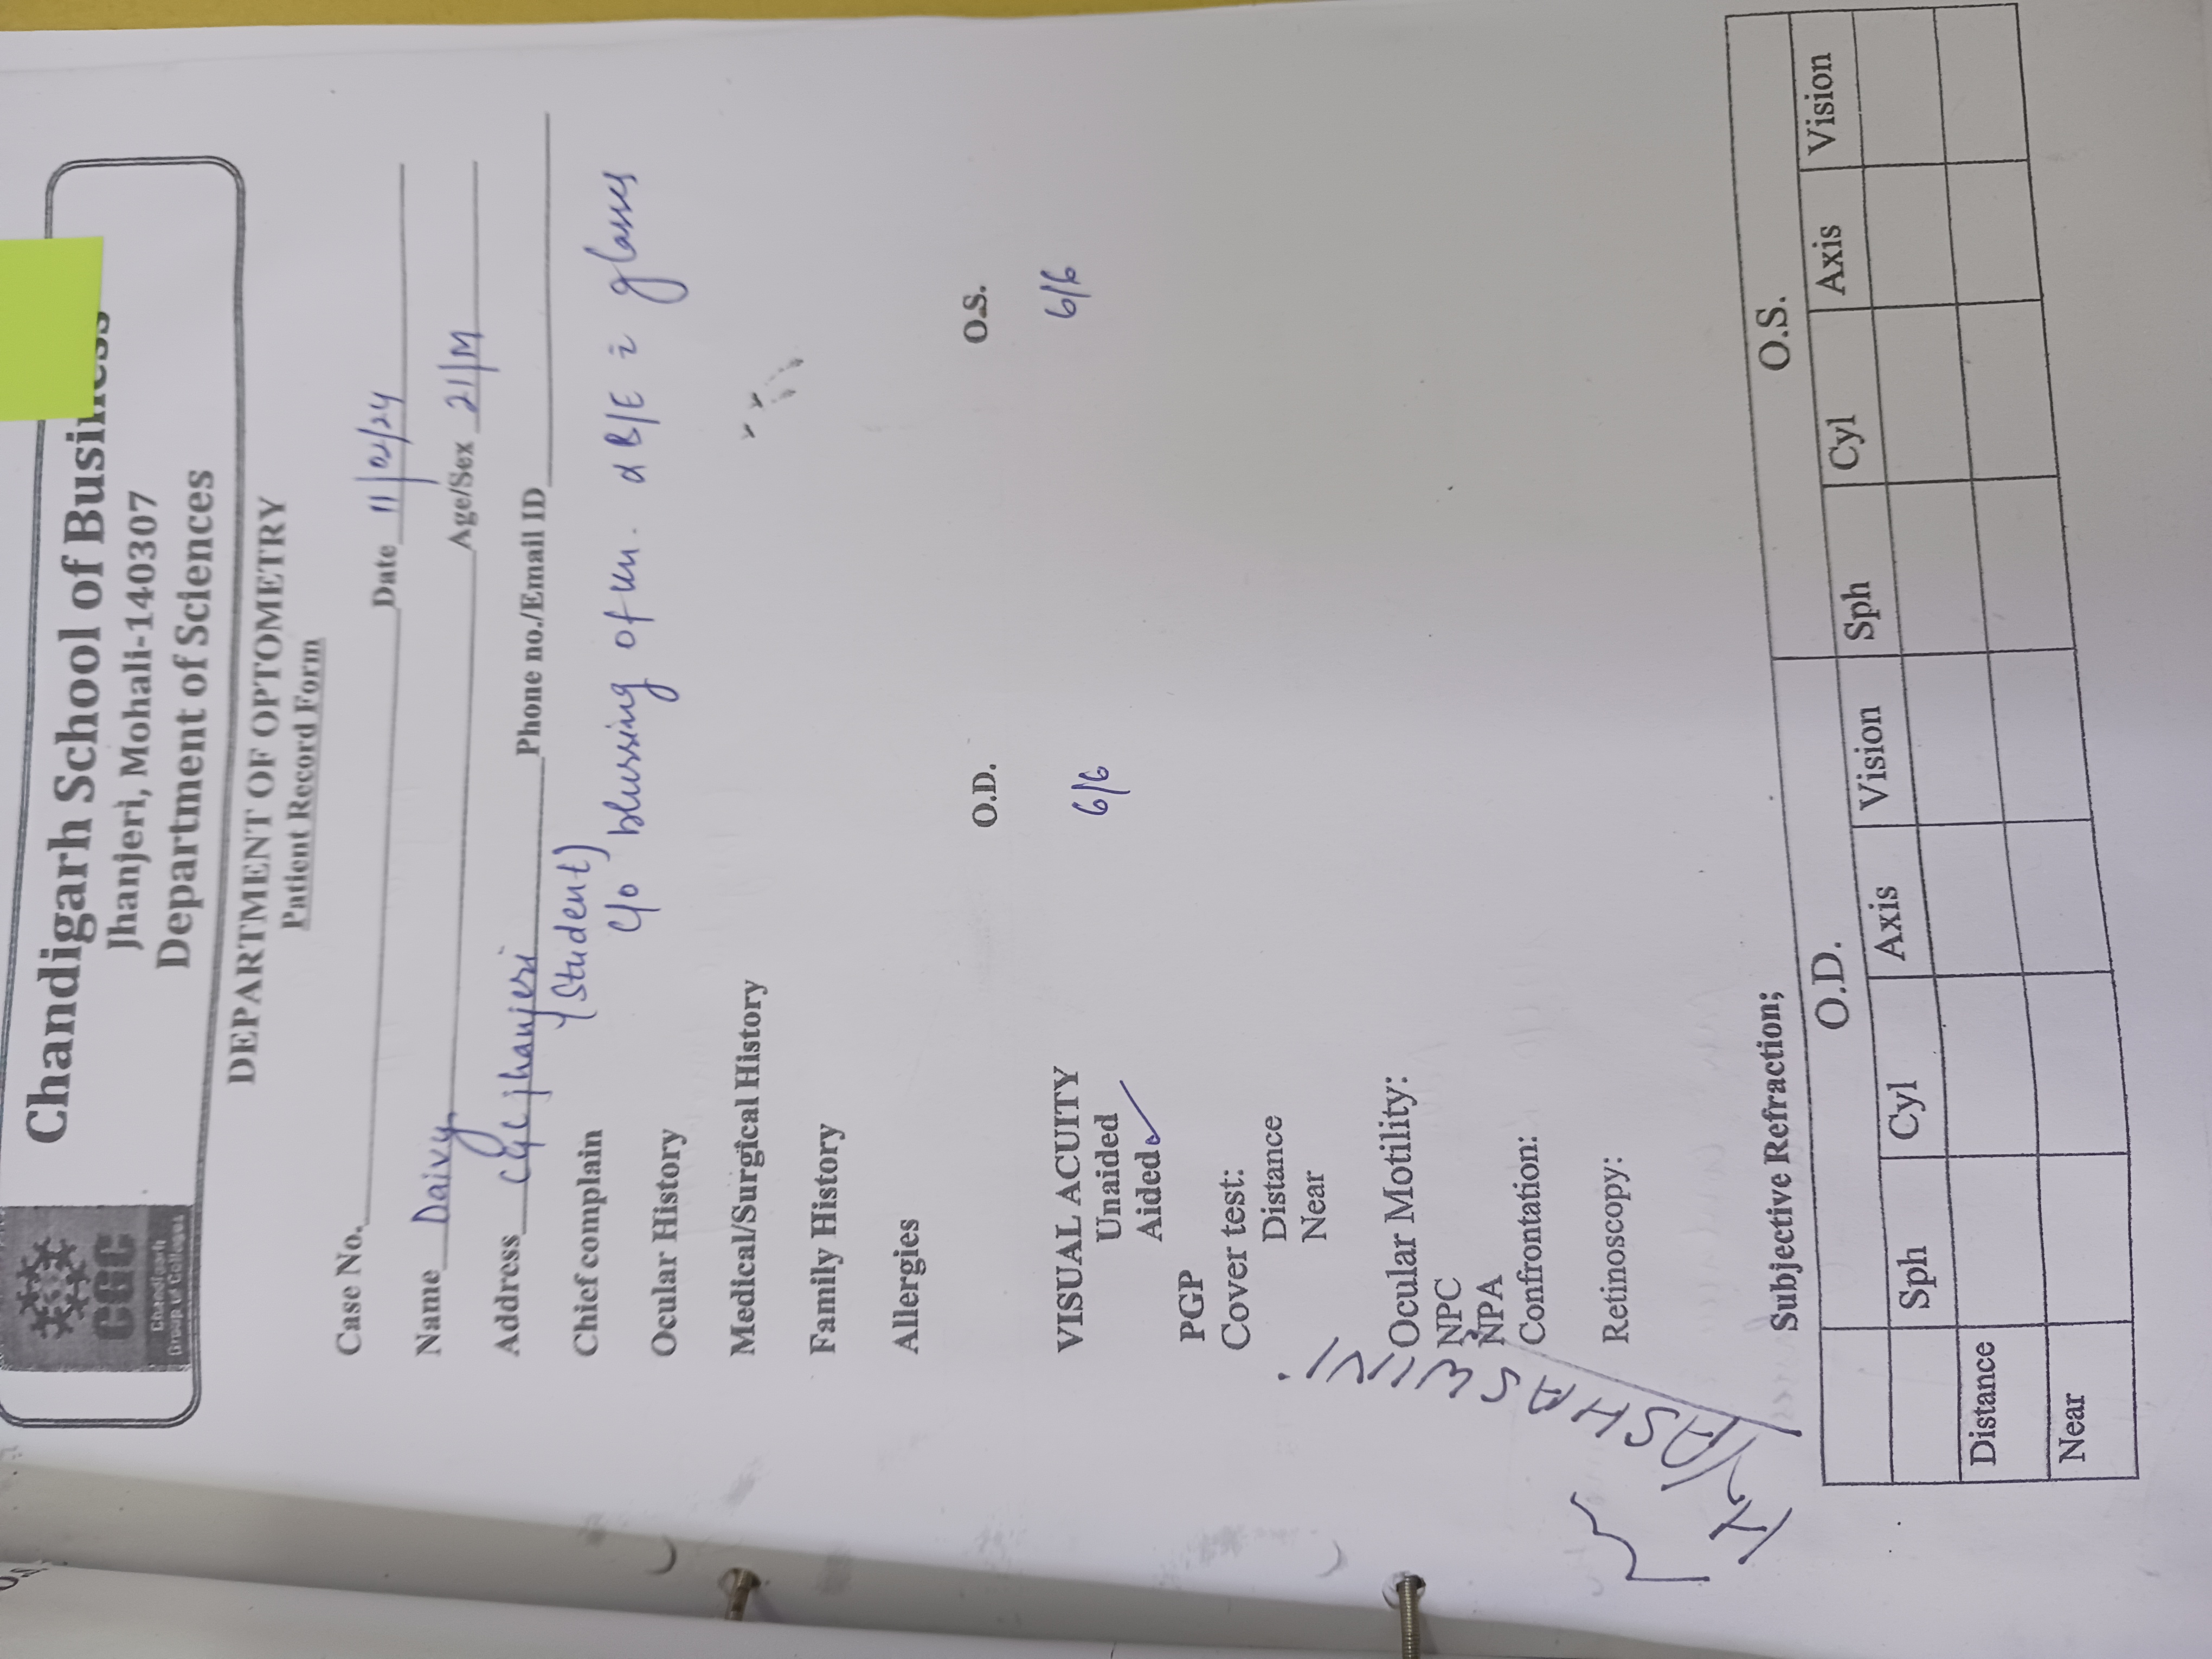 CGC
Chandigarh
Group of Colleges
Chandigarh School of Business
Jhanjeri, Mohali-140307
Department of Sciences
DEPARTMENT OF OPTOMETRY
Patient Record Form
Case No.
Date 11/02/24
Name Daivy
Age/Sex 21/M
Address CGC jhanjeri Phone no./Email ID
(Student)
Chief complain
c/o blurring of B/E c glasses
Ocular History
Medical/Surgical History
Family History
Allergies
O.D. O.S.
VISUAL ACUITY 6/6 6/6
Unaided
Aided ✓
PGP
Cover test:
Distance
Near
Ocular Motility:
NPC
NPA
Confrontation:
Retinoscopy:
YASHASWINI
Subjective Refraction;
O.D. O.S.
Sph Cyl Axis Vision Sph Cyl Axis Vision
Distance
Near